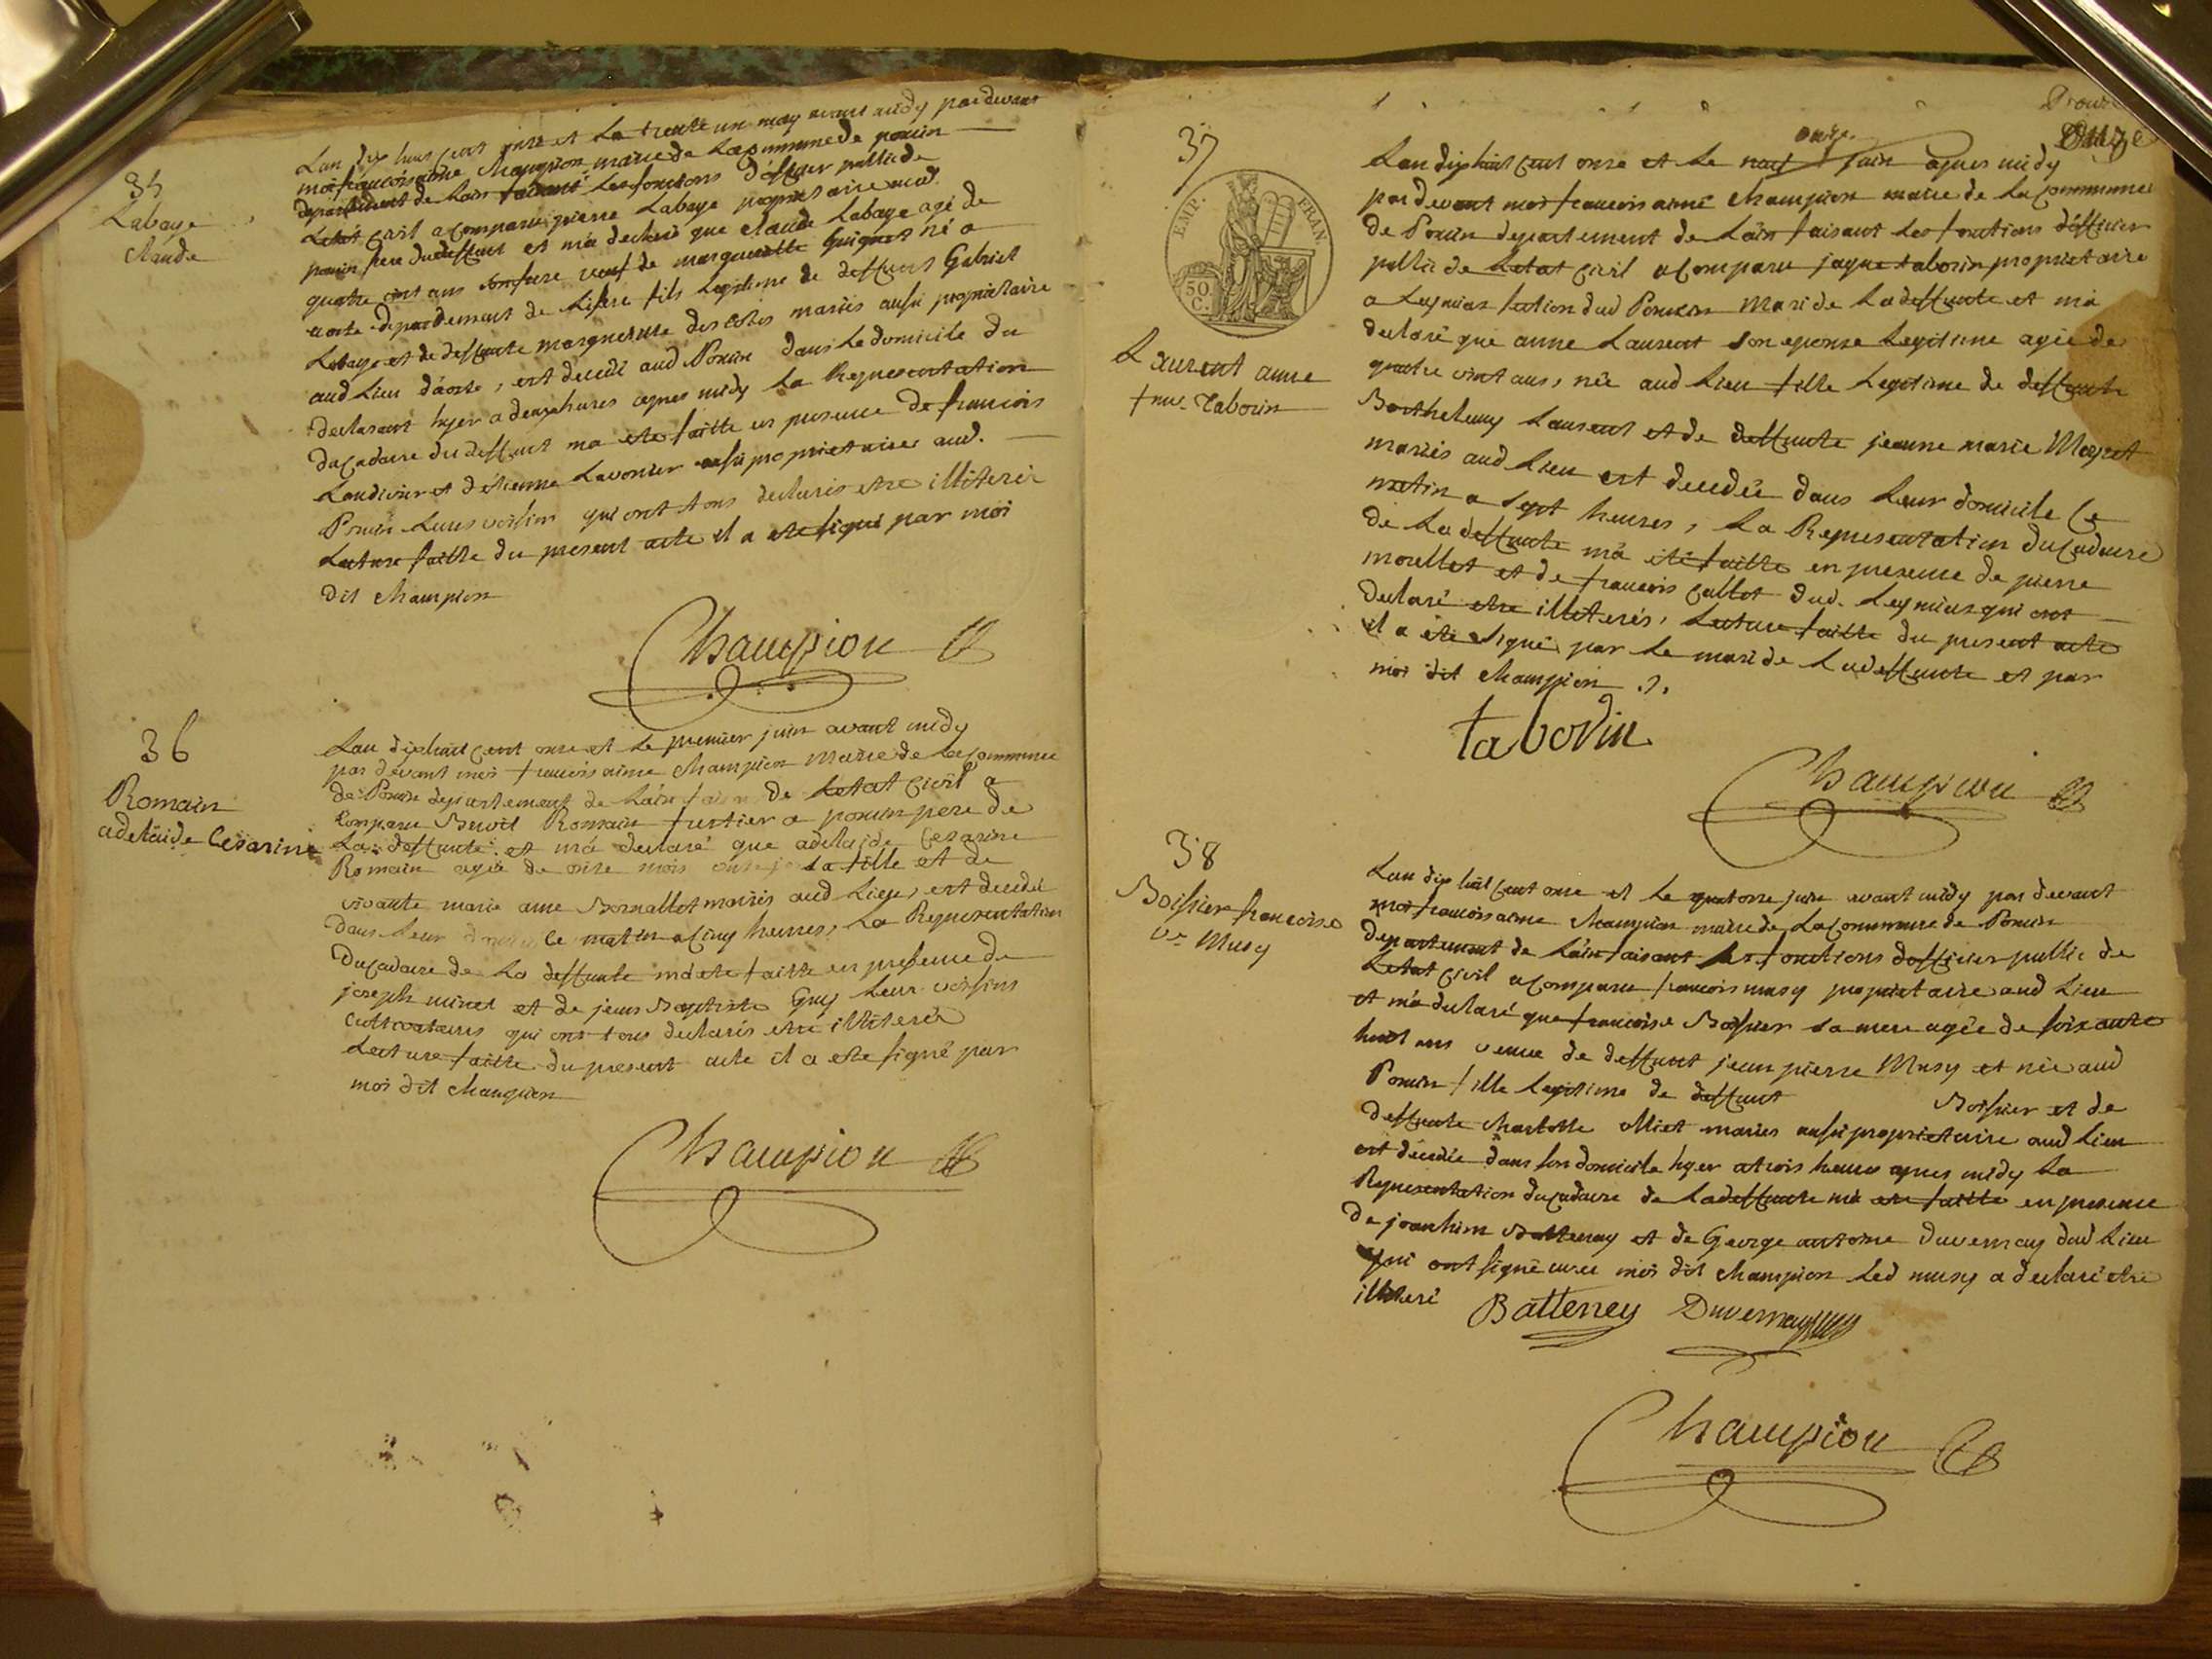 35
Labaye
Claude
Lan dix huit cent onze et le trente un may avant midy pardevant
moi francois aimé Champion maire de la commune de poncin
departement de lain faisant les fonctions d'officier public de
Letat civil a comparu pierre Labaye proprietaire aud.
poncin frere du deffunt et m'a declaré que claude Labaye agé de
quatre vint ans veuf de marguerite Guignet né a
aoste departement de Lisere fils legitime de deffunt Gabriel
Labaye et de deffunte marguerite des cotes mariés aussi proprietaire
aud Lieu d'aoste, est decedé aud Poncin dans le domicile du
declarant hyer a deux heures apres midy la Representation
du cadavre du deffunt ma ete faitte en presence de francois
Landivier et d'etienne Lavonier aussi proprietaires aud.
Poncin leurs voisins qui ont tous declarés etre illiterés
Lecture faitte du present acte il a ete signé par moi
dit champion
Champion
36
Romain
adelaide Cesarine
Lan dix huit cent onze et le premier juin avant midy
par devant moi francois aime Champion Maire de la commune
de Poncin departement de Lain de letat civil a
comparu Benoit Romain a poncin pere de
La deffunte et m'a declaré que adelaide Cesarine
Romain agée de onze mois sa fille et de
vivante marie anne Bornallet mariés aud Lieu, est decedée
dans leur domicile ce matin a cinq heures, La Representation
du cadavre de la deffunte m'a ete faitte en presence de
joseph minet et de jean Baptiste Guy leur voisins
cultivateurs qui ont tous declarés etre illiterés
Lecture faitte du present acte il a ete signé par
moi dit Champion
Champion
Douze
Onze
37
EMP. FRAN.
50 C.
Laurent anne
fme. Taborin
onze
Lan dix huit cent onze et le neuf juin apres midy
par devant moi francois aimé Champion maire de la commune
de Poncin departement de Lain faisant les fonctions d'officier
public de Letat civil a comparu jaque taborin proprietaire
a Leymiat section dud Poncin Mari de La deffunte et m'a
declaré que anne Laurent son epouse Legitime agée de
quatre vint ans, née aud Lieu fille Legitime de deffunt
Barthelemy Laurent et de deffunte jeanne marie Meynet
mariés aud Lieu est decedée dans leur domicile ce
matin a sept heures, La Representation du cadavre
de La deffunte m'a eté faitte en presence de pierre
moullet et de francois callot dud. Leymiat qui ont
declaré etre illiterés, Lecture faitte du present acte
il a ete signé par le mari de la deffunte et par
moi dit champion
taborin
Champion
38
Boissier francoise
ve Musy
Lan dix huit cent onze et le quatorze juin avant midy par devant
moi francois aime Champion maire de La commune de Poncin
departement de Lain faisant les fonctions d'officier public de
Letat civil a comparu francois musy proprietaire aud Lieu
et m'a declaré que francoise Boissier sa mere agée de soixante
huit ans veuve de deffunt jean pierre Musy et née aud
Poncin fille legitime de deffunt Boissier et de
deffunte Charlotte Miet mariés aussi proprietaire aud Lieu
est décedée dans son domicile hyer a trois heures apres midy La
Representation du cadavre de La deffunte m'a ete faitte en presence
de joanhim Batteney et de George antoine Duvernay dud Lieu
qui ont signé avec moi dit champion Led musy a declaré etre
illiteré
Batteney Duvernay
Champion